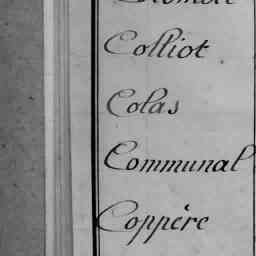 Colliot
Colas
Communal
Coppère